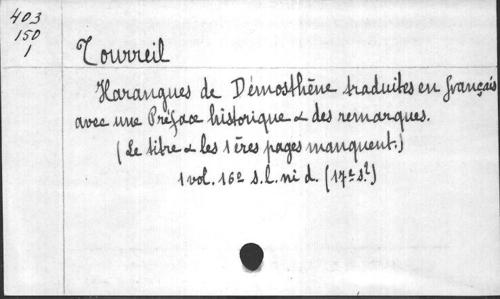 403
150
1
Tourreil
Harangues de Démosthène traduites en français
avec une Préface historique & des remarques.
(Le titre & les 1ères pages manquent.)
1 vol. 16º s.l. ni d. (17e s.)